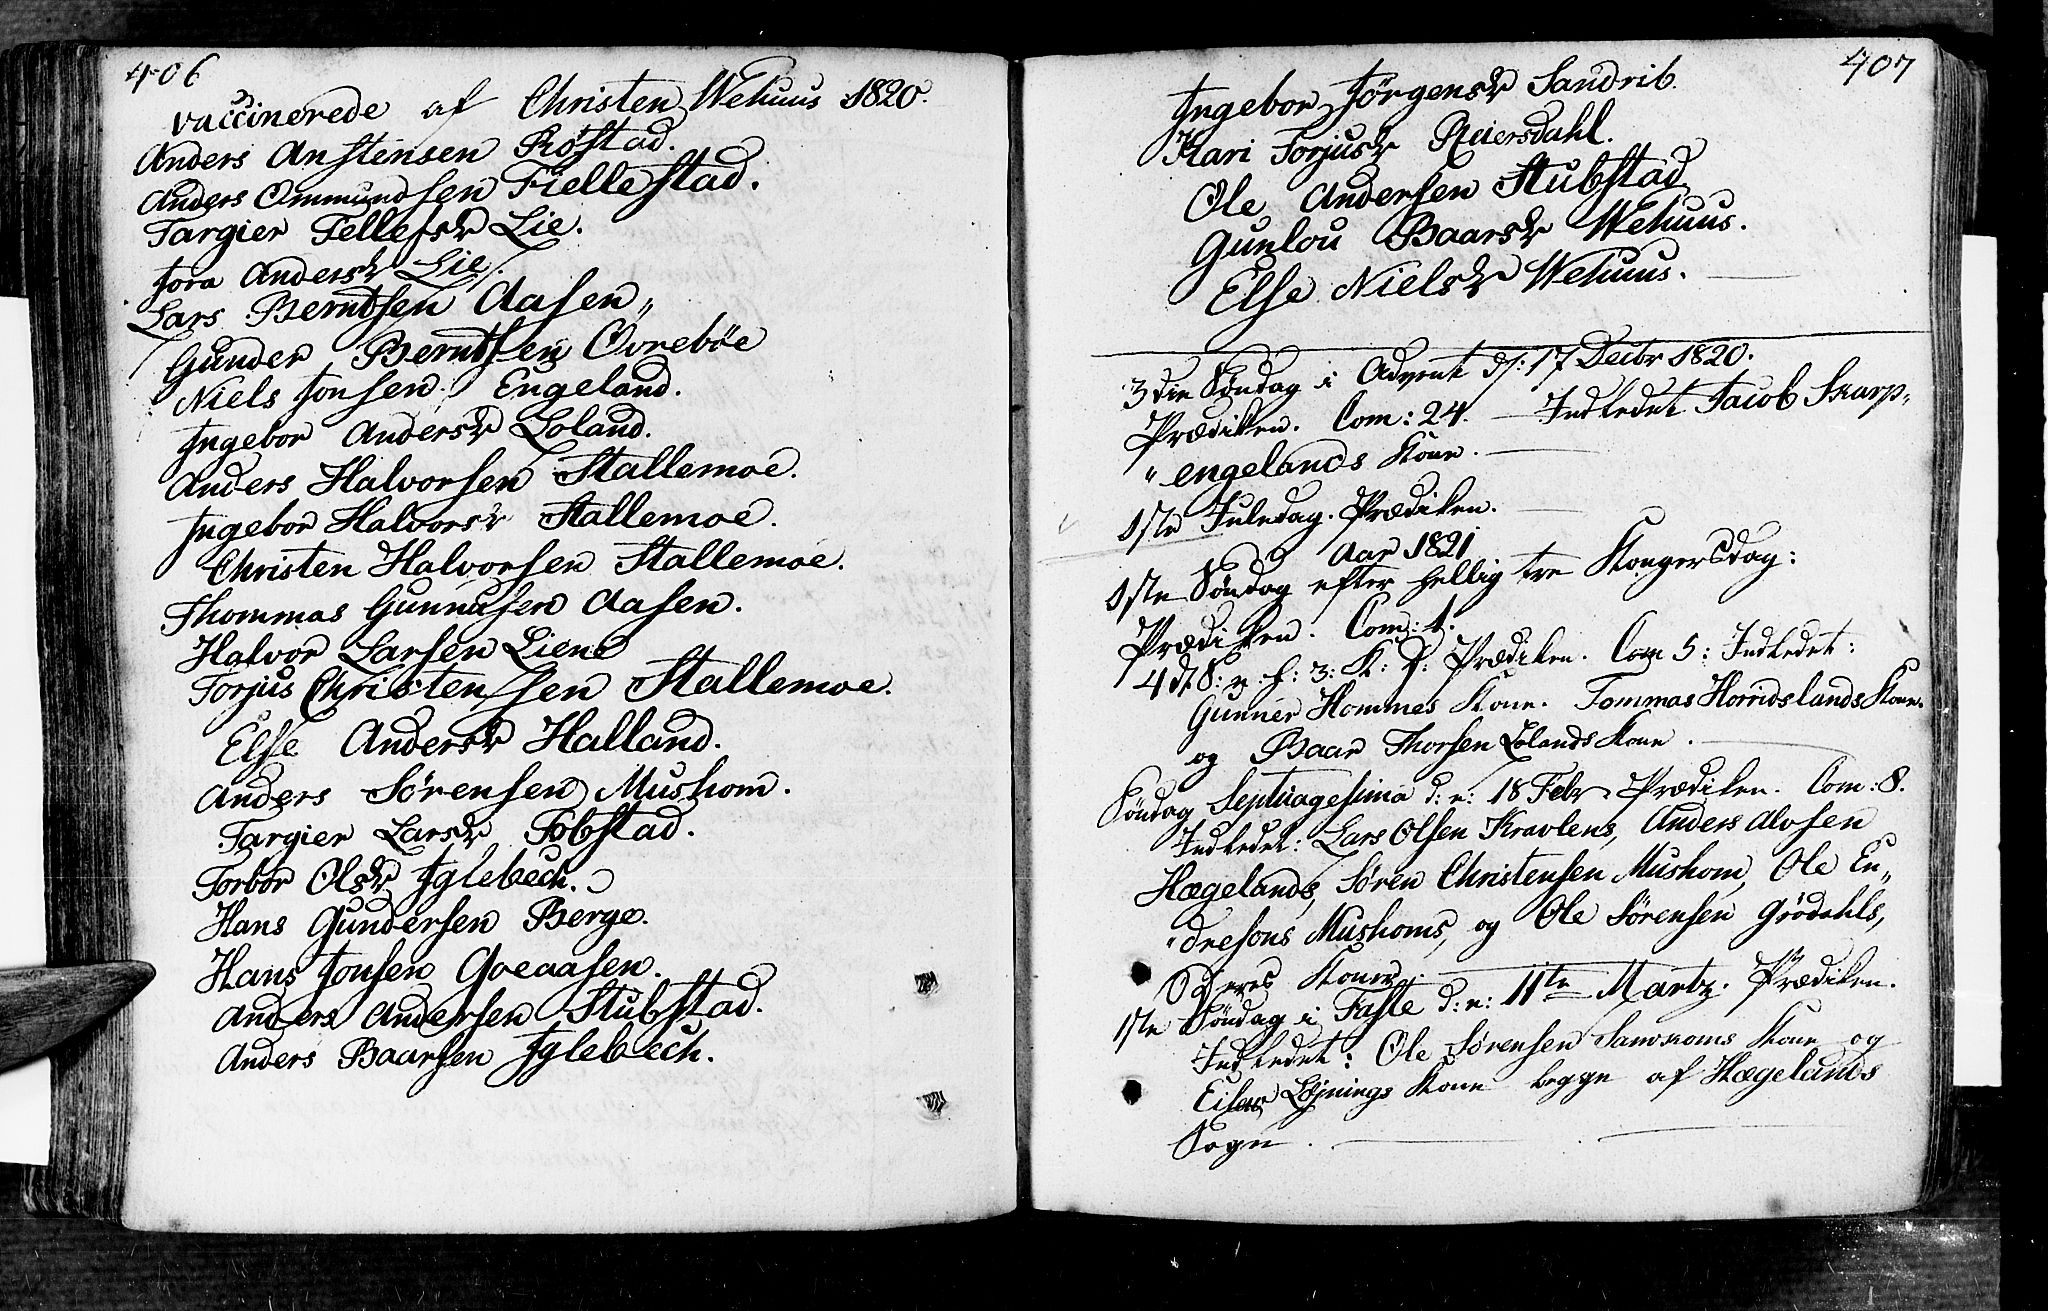 406
vaccinerede af Christen Wehuus 1820.
Anders Anstensen Røstad.
Anders Ommundsen Fiellestad.
Targier Tellefsdr Lie.
Tora Andersdr Lie.
Lars Berntsen Aasen„
Gunder Berntsen Øvrebøe
Niels Jonsen Engeland.
Ingebor Andersdr Loland.
Anders Halvorsen Stallemoe.
Ingebor Halvorsdr Stallemoe.
Christen Halvorsen Stallemoe.
Thommas Gunnufsen Aasen.
Halvor Larsen Liene
Torjus Christensen Stallemoe.
Else Andersdr Halland.
Anders Sørensen Mushom.
Targier Larsdr Fobstad.
Torbor Olsdr Iglebech.
Hans Gundersen Berge.
Hans Jonsen Goeaasen.
Anders Andersen Stubstad.
Anders Baarsen Iglebech.
407
Ingebor Jørgensdr Sandrib.
Kari Torjusdr Reiersdahl.
Ole Andersen Stubstad
Gunlou Baarsdr Wehuus.
Else Nielsdr Wehuus.
3die Søndag i Advent d: 17 Decbr 1820.
Prædiken. Com: 24. Indledet Jacob Skarp„
„engelands Kone.
1ste Juledag. Prædiken.
Aar 1821
1ste Søndag efter hellig tre Kongersdag:
Prædiken. Com: 1.
4d S: e: h: 3: K: D: Prædiken. Com 5: Indledet:
Gunner Hommes Kone. Tommas HorridslandsKone.
og Baar Thorsen Lolands Kone.
Søndag Septuagesima d: e: 18 Febr. Prædiken. Com: 8.
Indledet: Lars Olsen Kravlens, Anders Alvsen
Hægelands, Søren Christensen Mushom, Ole En„
„dresons Mushoms, og Ole Sørensen Grødahls,
Deres Koner.
1ste Søndag i Faste d: e: 11te Martz. Prædiken.
Indledet: Ole Sørensen Kone og
Eilev Løjnings Kone begge af Hægelands
Sogn.